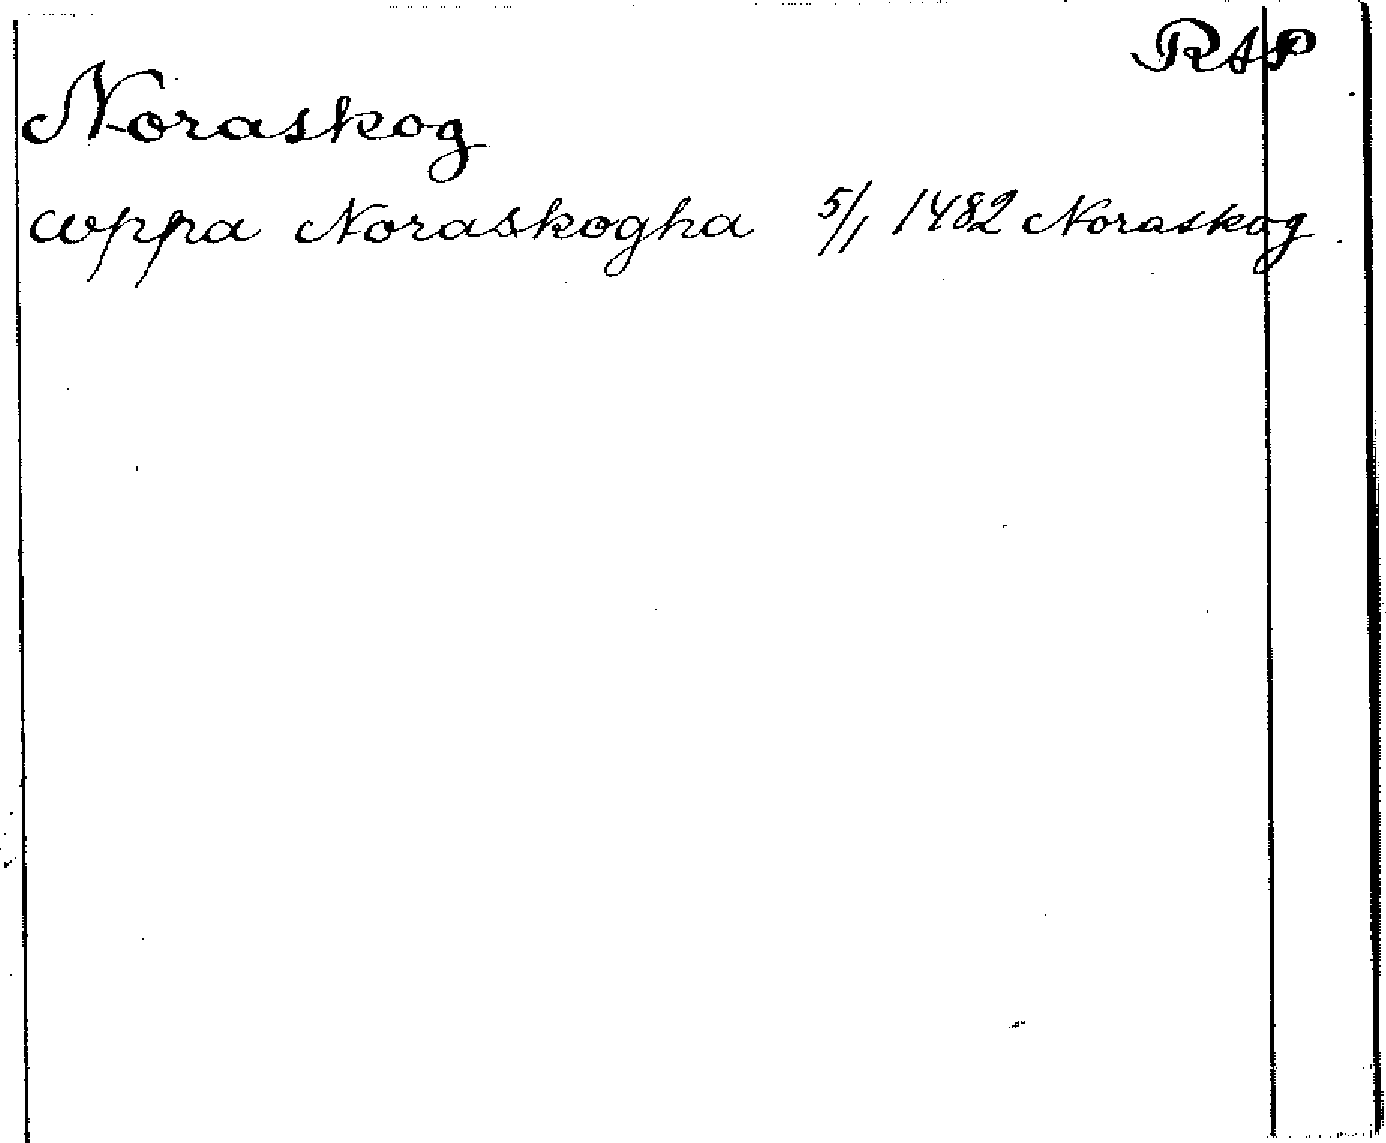 RAP
Noraskog
wppa Noraskogha 5/1 1482 Noraskog.